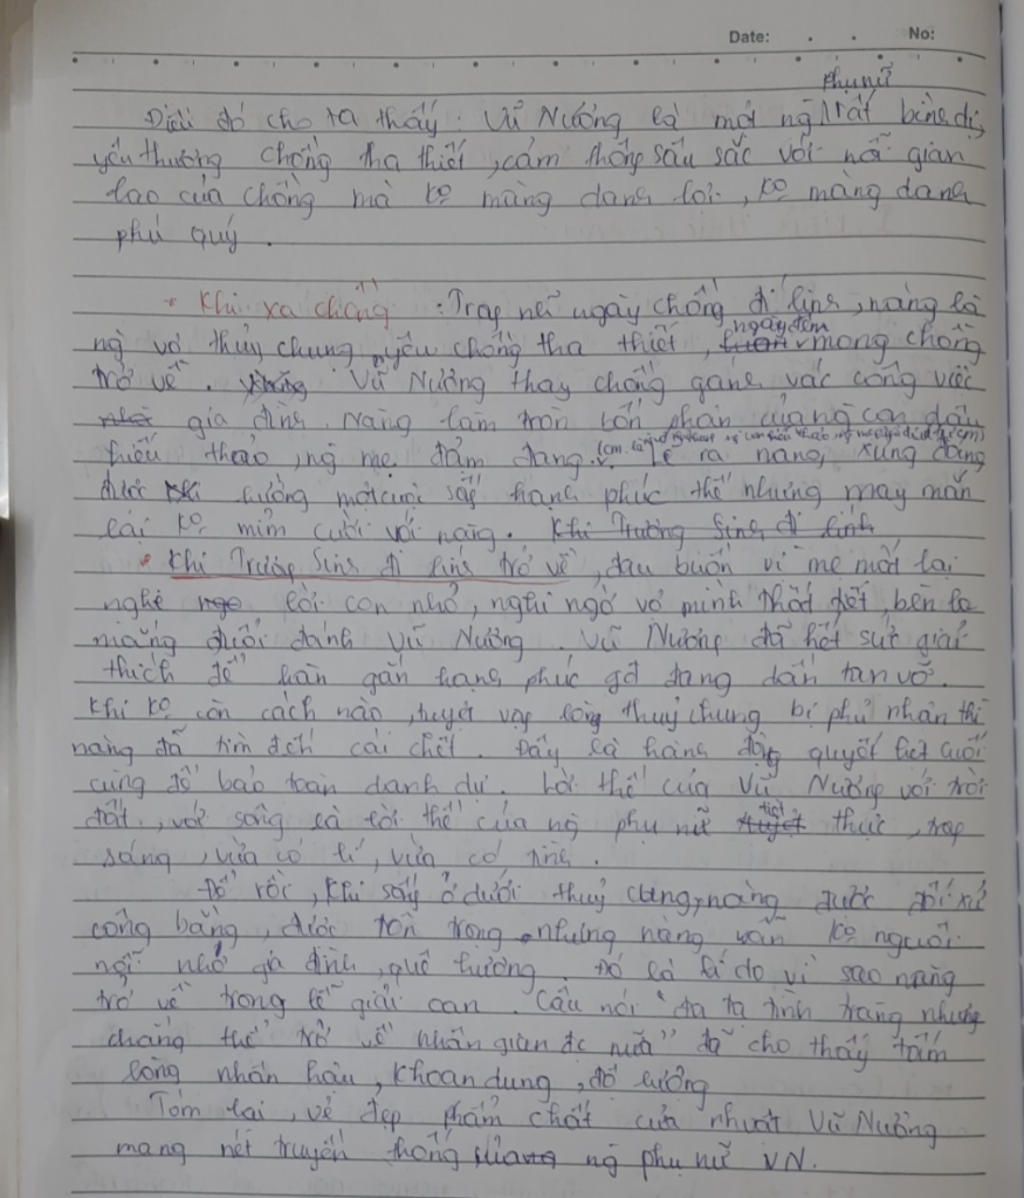 Date: . . No:
phụ nữ
Điều đó cho ta thấy : Vũ Nương là một ng rất bình dị,
yêu thương chồng tha thiết, cảm thông sâu sắc với nỗi gian
lao của chồng mà ko màng danh lợi, ko màng danh
phú quý.
• Khi xa chồng : Trong nh ngày chồng đi lính, nàng là
ngày đêm
ng vợ thủy chung, yêu chồng tha thiết, luôn mong chồng
trở về. Vũ Nương thay chồng gánh vác công việc
gia đình. Nàng làm tròn bổn phận của ng con dâu
hiếu thảo, ng mẹ đảm đang. Lẽ ra nàng xứng đáng
được hưởng một cuộc sống hạnh phúc thế nhưng may mắn
lại ko mỉm cười với nàng. Khi Trương Sinh đi lính
• Khi Trương Sinh đi lính trở về, đau buồn vì mẹ mất lại
nghe lời con nhỏ, nghi ngờ vợ mình thất tiết, bèn la
mắng đuổi đánh Vũ Nương. Vũ Nương đã hết sức giải
thích để hàn gắn hạnh phúc gđ đang dần tan vỡ.
Khi ko còn cách nào, tuyệt vọng lòng thuỷ chung bị phủ nhận thì
nàng đã tìm đến cái chết. Đây là hành động quyết liệt cuối
cùng để bảo toàn danh dự. Lời thề của Vũ Nương với trời
tiết
đất, với sông là lời thề của ng phụ nữ thực, trong
sáng, vừa có lí, vừa có tình.
Để rồi, khi sống ở dưới thuỷ cung, nàng được đối xử
công bằng, được tôn trọng nhưng nàng vẫn ko nguôi
nỗi nhớ gia đình, quê hương. Đó là lí do vì sao nàng
trở về trong lễ giải oan. Câu nói "đa tạ tình trạng nhưng
chẳng thể trở về nhân gian đc nữa" đã cho thấy tấm
lòng nhân hậu, khoan dung, độ lượng
Tóm lại, vẻ đẹp phẩm chất của nhvật Vũ Nương
mang nét truyền thống của ng phụ nữ VN.